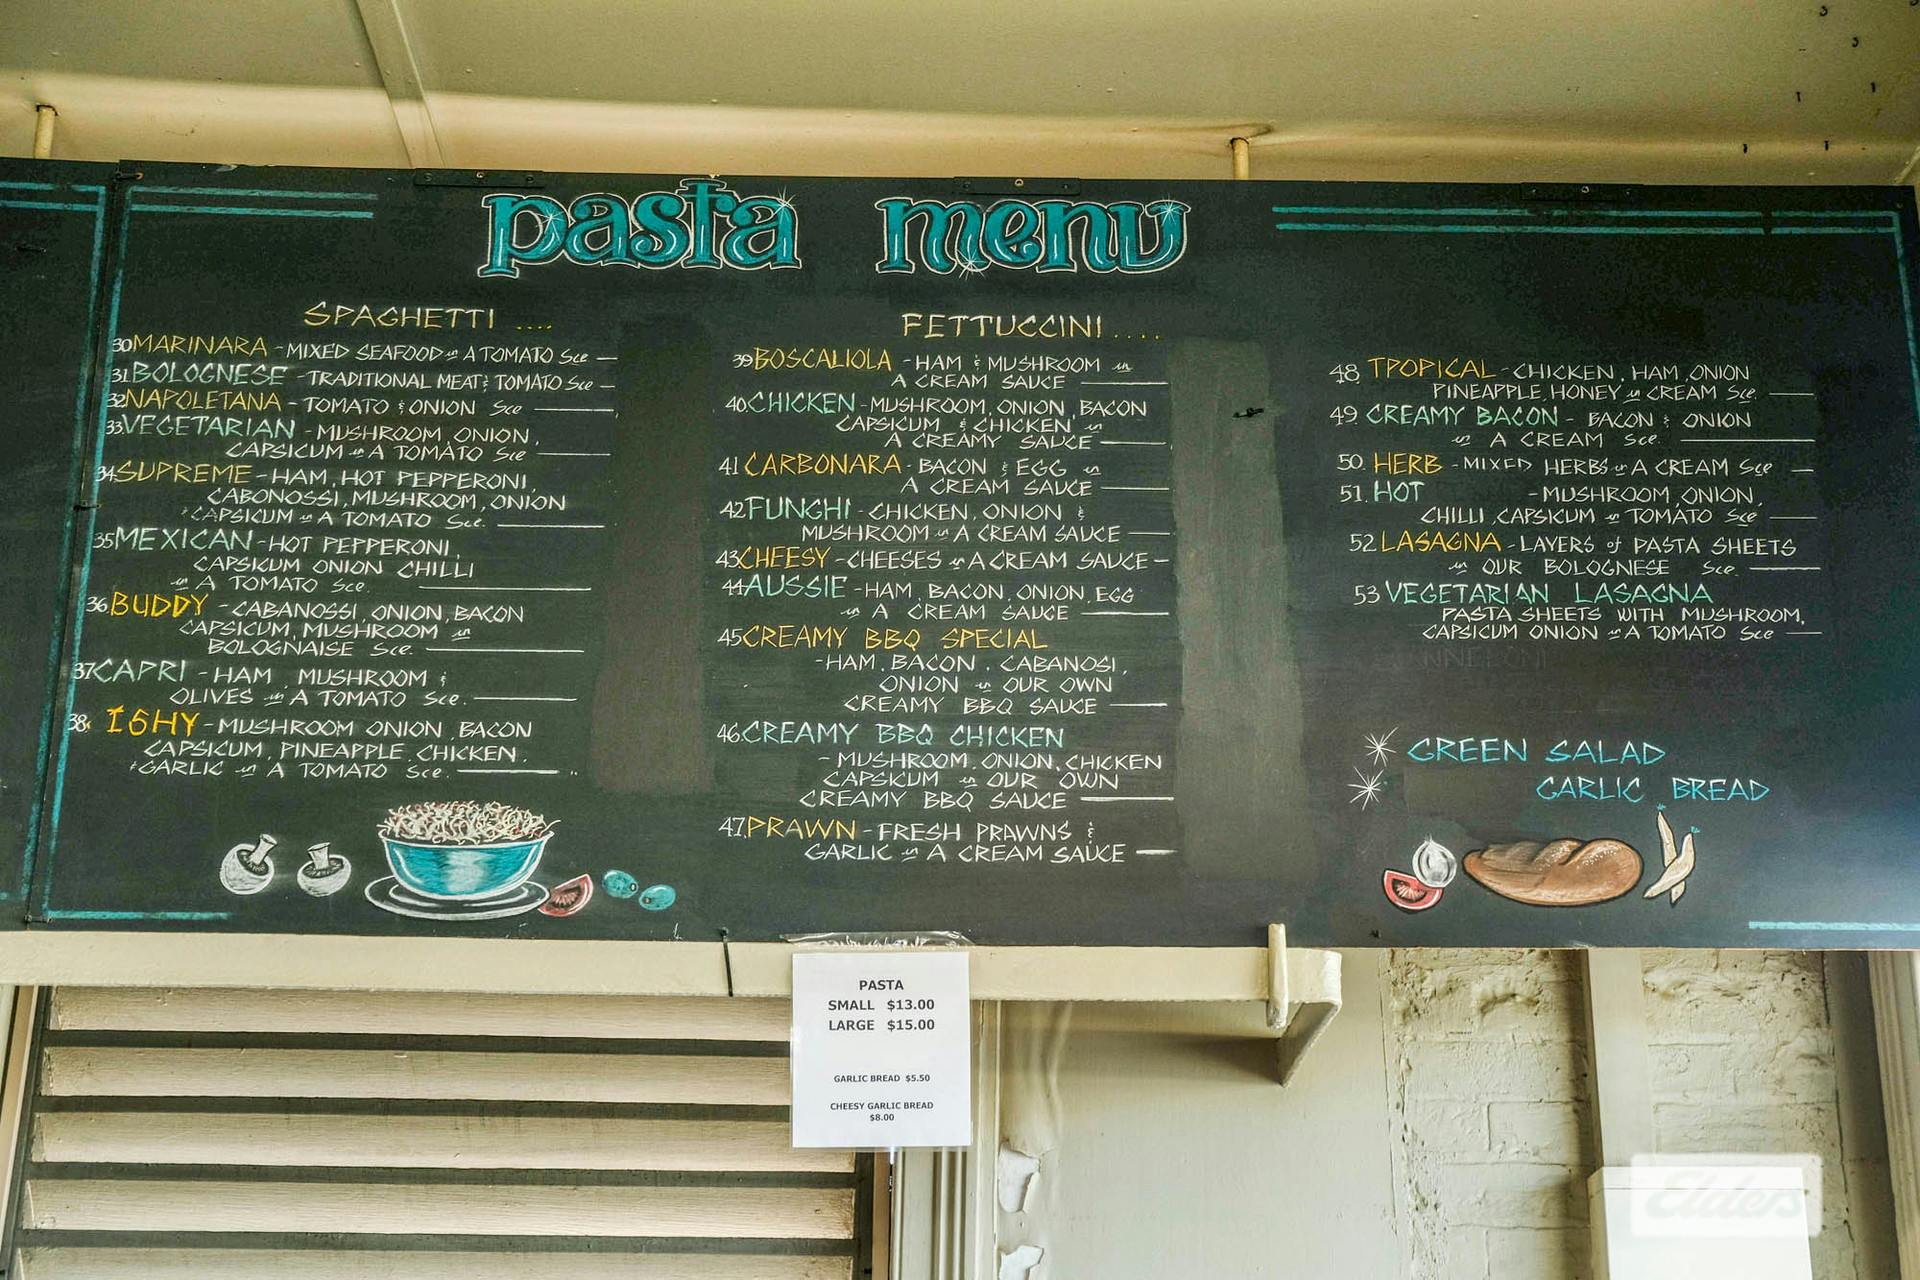 pasta menu
SPAGHETTI ....
30 MARINARA - MIXED SEAFOOD in A TOMATO Sce
31 BOLOGNESE - TRADITIONAL MEAT & TOMATO Sce
32 NAPOLETANA - TOMATO & ONION Sce
33 VEGETARIAN - MUSHROOM, ONION,
CAPSICUM in A TOMATO Sce
34 SUPREME - HAM, HOT PEPPERONI,
CABONOSSI, MUSHROOM, ONION
& CAPSICUM in A TOMATO Sce.
35 MEXICAN - HOT PEPPERONI,
CAPSICUM ONION CHILLI
in A TOMATO Sce.
36 BUDDY - CABANOSSI, ONION, BACON
CAPSICUM, MUSHROOM in
BOLOGNAISE Sce.
37 CAPRI - HAM, MUSHROOM &
OLIVES in A TOMATO Sce.
38. IGHY - MUSHROOM ONION, BACON
CAPSICUM, PINEAPPLE, CHICKEN,
& GARLIC in A TOMATO Sce.
FETTUCCINI ....
39 BOSCALIOLA - HAM & MUSHROOM in
A CREAM SAUCE
40. CHICKEN - MUSHROOM, ONION, BACON
CAPSICUM & CHICKEN in
A CREAMY SAUCE
41 CARBONARA - BACON & EGG in
A CREAM SAUCE
42 FUNGHI - CHICKEN, ONION &
MUSHROOM in A CREAM SAUCE
43 CHEESY - CHEESES in A CREAM SAUCE
44 AUSSIE - HAM, BACON, ONION, EGG
in A CREAM SAUCE
45 CREAMY BBQ SPECIAL
- HAM, BACON, CABANOSI,
ONION in OUR OWN
CREAMY BBQ SAUCE
46 CREAMY BBQ CHICKEN
- MUSHROOM, ONION, CHICKEN
CAPSICUM in OUR OWN
CREAMY BBQ SAUCE
47. PRAWN - FRESH PRAWNS &
GARLIC in A CREAM SAUCE
48. TROPICAL - CHICKEN, HAM, ONION
PINEAPPLE, HONEY in CREAM Sce
49. CREAMY BACON - BACON & ONION
in A CREAM Sce.
50. HERB - MIXED HERBS in A CREAM Sce
51. HOT - MUSHROOM, ONION,
CHILLI, CAPSICUM in TOMATO Sce
52 LASAGNA - LAYERS of PASTA SHEETS
in OUR BOLOGNESE Sce.
53 VEGETARIAN LASAGNA
PASTA SHEETS WITH MUSHROOM,
CAPSICUM ONION in A TOMATO Sce
GREEN SALAD
GARLIC BREAD
PASTA
SMALL $13.00
LARGE $15.00
GARLIC BREAD $5.50
CHEESY GARLIC BREAD
$8.00
Elders